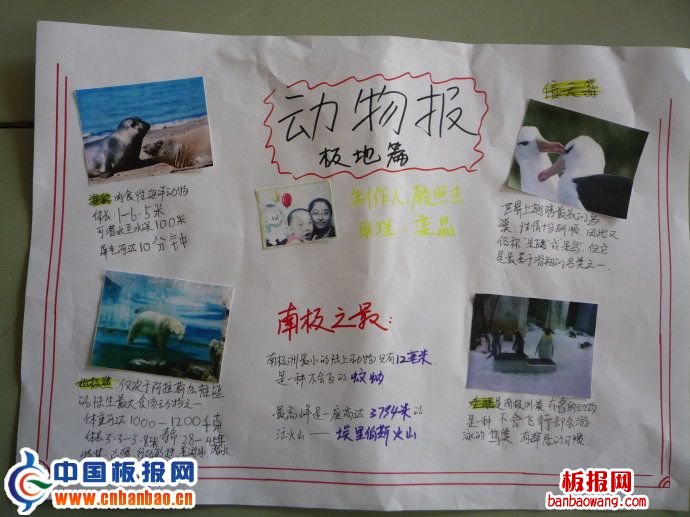 动物报
极地篇
制作人:殷熙杰
助理:栾晶
信天翁
海豹 肉食性海洋动物
体长1-6.5米
可潜水至水深100米
屏气可达10分钟
世界上翅膀最长的鸟
是最善于滑翔的鸟类之一
南极之最:
南极洲最小的陆上动物只有12毫米,
是一种不会飞的蚊蚋
最高峰是一座高达3794米的
活火山——埃里伯斯火山
北极熊:仅次于阿拉斯加棕熊
的陆生最大食肉动物之一
体重可达1000-1200千克
体长3.3-3.8米
企鹅是南极洲最有名的动物
是一种不会飞行却会游
泳的鸟类
中国板报网
www.cnbanbao.cn
板报网
banbaowang.com